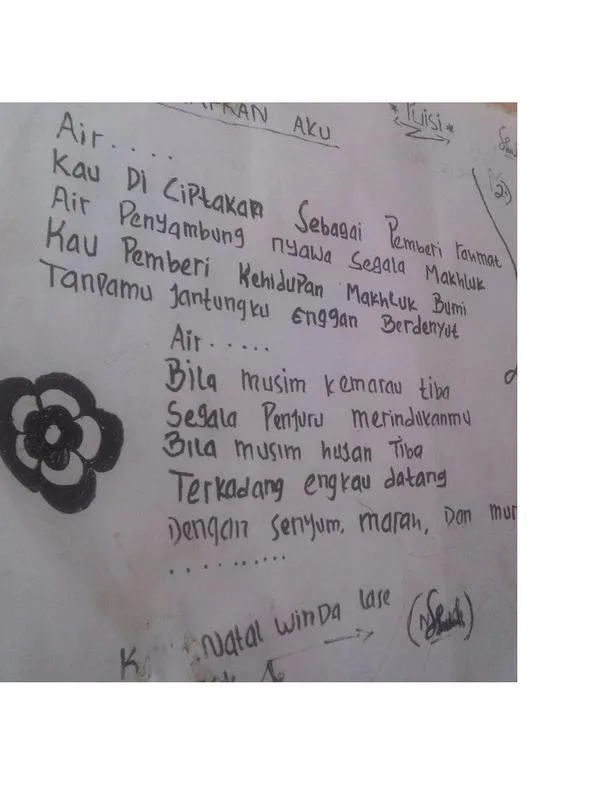 AKU
* Puisi *
Air....
Kau Di Ciptakan Sebagai Pemberi rahmat
Air Penyambung nyawa Segala Makhluk
Kau Pemberi Kehidupan Makhluk Bumi
Tanpamu Jantungku Enggan Berdenyut
Air.....
Bila musim kemarau tiba
Segala Penjuru merindukanmu
Bila musim hujan Tiba
Terkadang engkau datang
Dengan senyum, marah, Dan mur
..........
Natal Winda lase